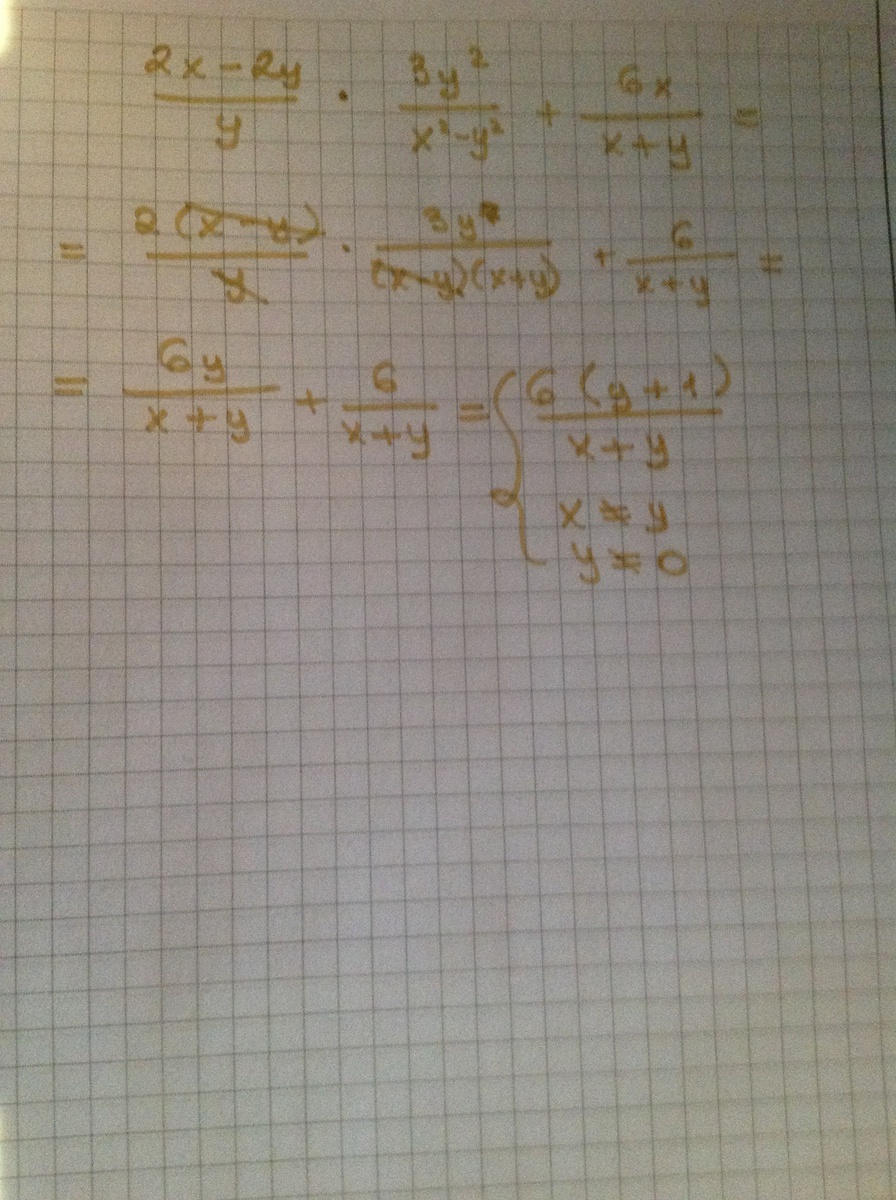 (2x - 2y)/y · 3y²/(x² - y²) + 6x/(x + y) =
= 2(x - y)/y · 3y²/((x - y)(x + y)) + 6/(x + y) =
= 6y/(x + y) + 6/(x + y) = { 6(y + 1)/(x + y)
x ≠ y
y ≠ 0